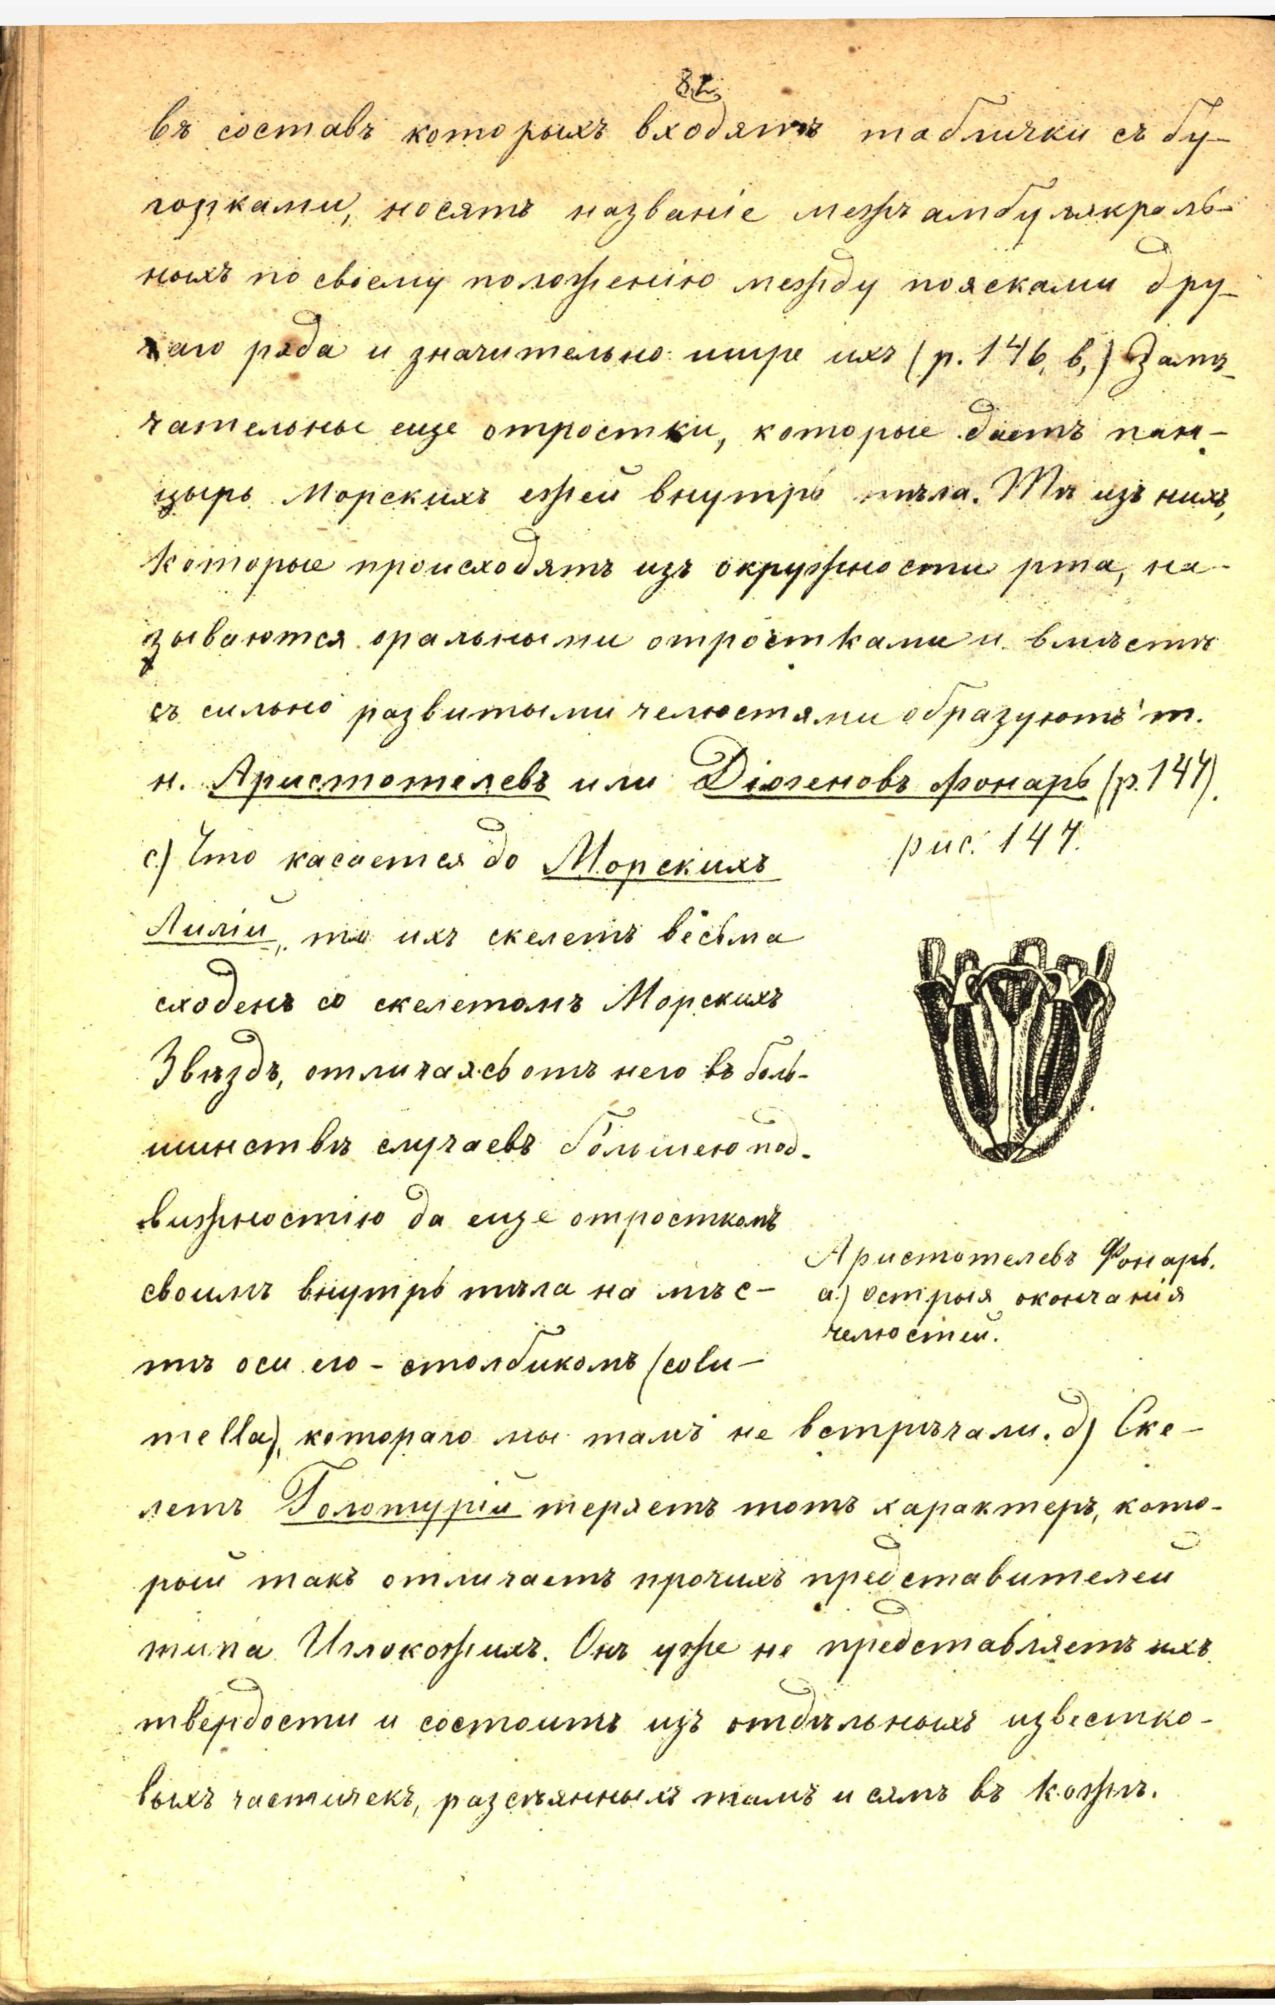 82
въ составъ которыхъ входятъ таблички съ бу-
горками, носятъ названіе межъамбулякраль-
ныхъ по своему положенію между поясками дру-
гаго ряда и значительно шире ихъ (р. 146, в,) Замѣ-
чательные еще отростки, которые даетъ пан-
цырь Морскихъ ежей внутрь тѣла. Тѣ изъ нихъ,
которые происходятъ изъ окружности рта, на-
зываются оральными отростками и вмѣстѣ
съ сильно развитыми челюстями образуютъ т.
н. Аристотелевъ или Діогеновъ фонарь (р. 147).
с) Что касается до Морскихъ
Лилій, то ихъ скелетъ весьма
сходенъ со скелетомъ Морскихъ
Звѣздъ, отличаясь отъ него въ боль-
шинствѣ случаевъ большею под-
вижностію да еще отросткомъ
своимъ внутрь тѣла на мѣс-
тѣ оси его - столбикомъ (colu-
mella), котораго мы тамъ не встрѣчали. д) Ске-
летъ Голотурій теряетъ тотъ характеръ, кото-
рый такъ отличаетъ прочихъ представителей
типа Иглокожихъ. Онъ уже не представляетъ ихъ
твердости и состоитъ изъ отдѣльныхъ известко-
выхъ частичекъ, разсѣянныхъ тамъ и сямъ въ кожѣ.
рис. 147.
Аристотелевъ Фонарь.
а) Острыя окончанія
челюстей.